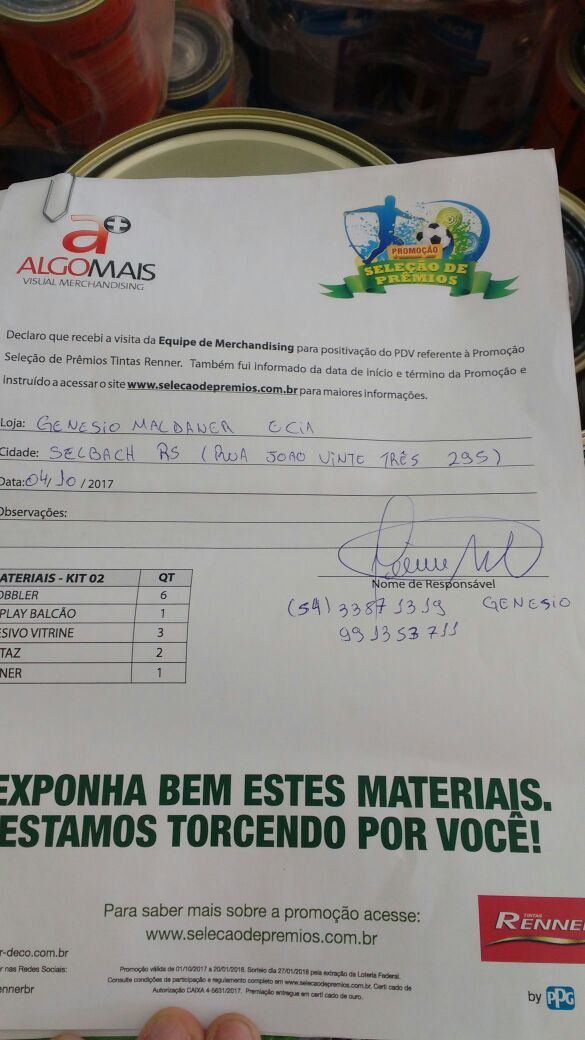 ALGOMAIS
VISUAL MERCHANDISING
PROMOÇÃO
SELEÇÃO DE
PRÊMIOS
Declaro que recebi a visita da Equipe de Merchandising para positivação do PDV referente à Promoção
Seleção de Prêmios Tintas Renner. Também fui informado da data de início e término da Promoção e
instruído a acessar o site www.selecaodepremios.com.br para maiores informações.
Loja: GENESIO MALDANER E CIA
Cidade: SELBACH RS (RUA JOAO VINTE TRÊS 295)
Data: 04/10/2017
Observações:
Nome de Responsável
(54) 33871319 GENESIO
991353711
ATERIAIS - KIT 02 QT
OBBLER 6
PLAY BALCÃO 1
ESIVO VITRINE 3
TAZ 2
NER 1
EXPONHA BEM ESTES MATERIAIS.
ESTAMOS TORCENDO POR VOCÊ!
Para saber mais sobre a promoção acesse:
www.selecaodepremios.com.br
r-deco.com.br
r nas Redes Sociais:
ennerbr
Promoção válida de 01/10/2017 a 20/01/2018. Sorteio dia 27/01/2018 pela extração da Loteria Federal.
Consulte condições de participação e regulamento completo em www.selecaodepremios.com.br. Certi cado de
Autorização CAIXA 4-5631/2017. Premiação entregue em certi cado de ouro.
TINTAS
RENNE
by PPG